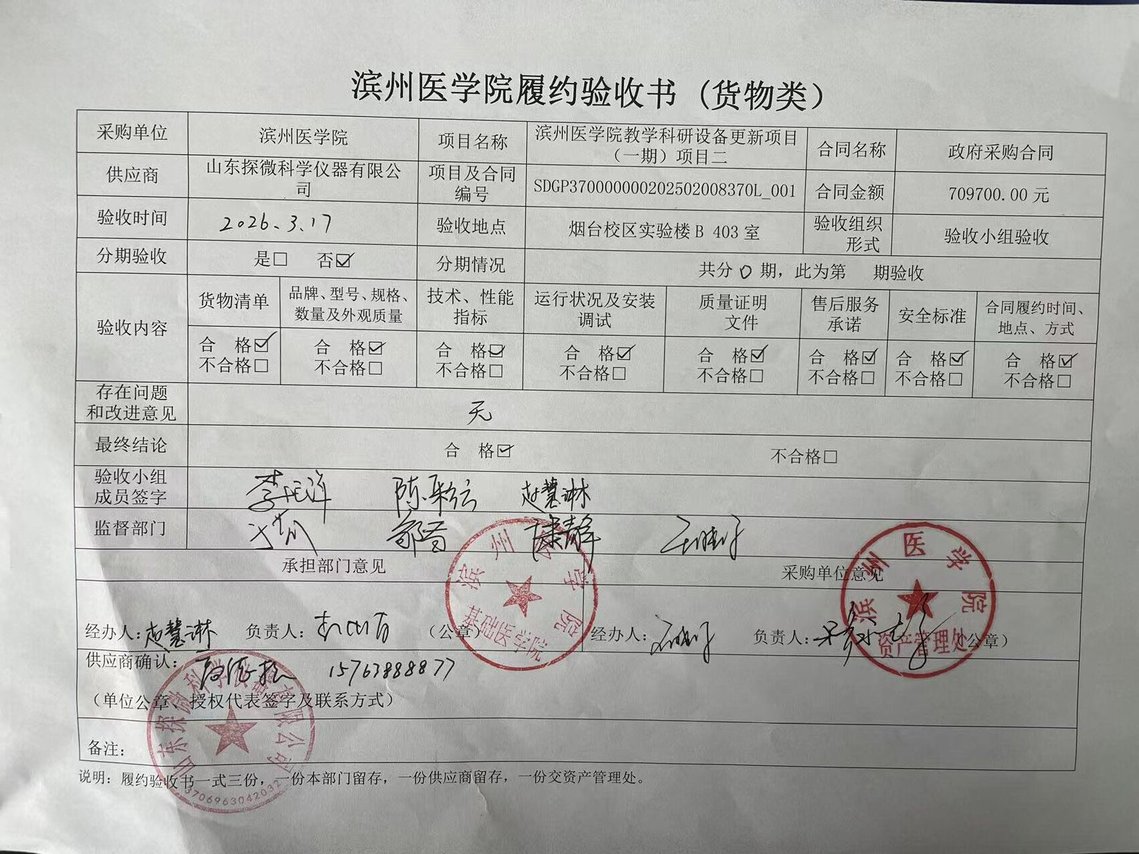 滨州医学院履约验收书（货物类）
采购单位 滨州医学院 项目名称 滨州医学院教学科研设备更新项目（一期）项目二 合同名称 政府采购合同
供应商 山东探微科学仪器有限公司 项目及合同编号 SDGP370000000202502008370L_001 合同金额 709700.00 元
验收时间 2026.3.17 验收地点 烟台校区实验楼B 403 室 验收组织形式 验收小组验收
分期验收 是□ 否☑ 分期情况 共分 0 期，此为第 期验收
验收内容
货物清单 品牌、型号、规格、数量及外观质量 技术、性能指标 运行状况及安装调试 质量证明文件 售后服务承诺 安全标准 合同履约时间、地点、方式
合 格☑ 合 格☑ 合 格☑ 合 格☑ 合 格☑ 合 格☑ 合 格☑ 合 格☑
不合格□ 不合格□ 不合格□ 不合格□ 不合格□ 不合格□ 不合格□ 不合格□
存在问题和改进意见 无
最终结论 合 格☑ 不合格□
验收小组成员签字 赵慧琳
监督部门
承担部门意见 采购单位意见
经办人：赵慧琳 负责人： （公章） 经办人： 负责人： （公章）
滨州医学院
基础医学院
滨州医学院
资产管理处
供应商确认： 15763888877
（单位公章、授权代表签字及联系方式）
山东探微科学仪器有限公司
3706963042032
备注：
说明：履约验收书一式三份，一份本部门留存，一份供应商留存，一份交资产管理处。